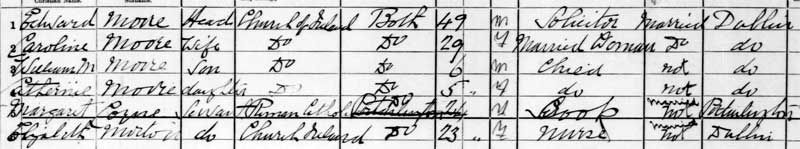 1 Edward Moore Head Church of Ireland Both 49 M Solicitor Married Dublin
2 Caroline Moore Wife Do Do 29 F Married Woman Do do
3 William M Moore Son Do Do 6 M Child not do
Catherine Moore daughter D Do 5 " F do not do
Margaret Servant Roman Cathol Do 24 " F Cook married not Portarlington
Elizabeth Morton do Church Ireland Do 23 " F Nurse married not Dublin